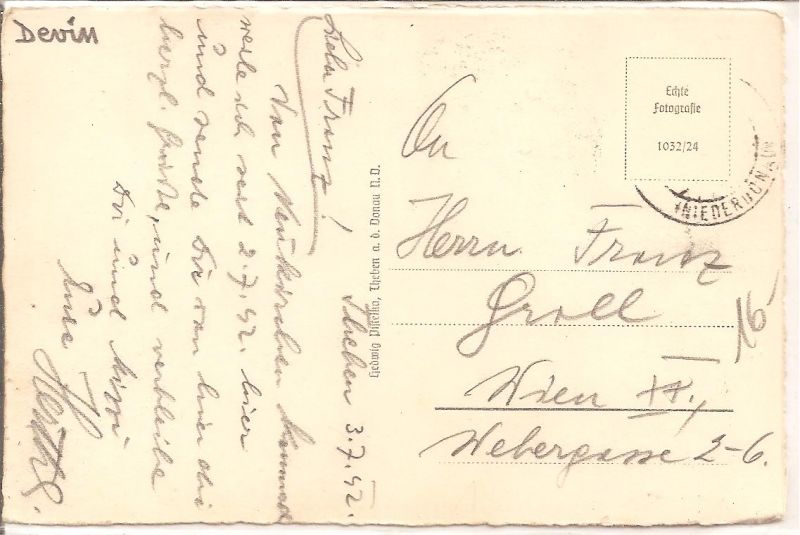 Devin
Theben 3.7.42.
Lieber Franz!
Von Neukirchen kommend
weile ich seit 2.7.42. hier
und sende Dir von hier die
herzl. Grüße, und verbleibe
Dir und
Eure
Hedwig Pistelka, Theben a. d. Donau N.D.
Echte
Fotografie
1032/24
NIEDERDONAU
An
Herrn Franz
Groll
Wien XX.,
16
Webergasse 2-6.